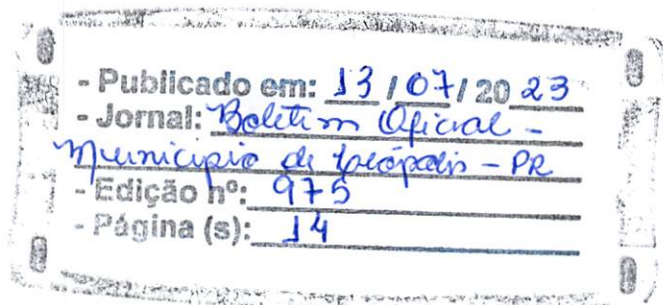 - Publicado em: 13 / 07 / 20 23
- Jornal: Boletim Oficial -
Município de Leópolis - PR
- Edição nº: 975
- Página (s): 14